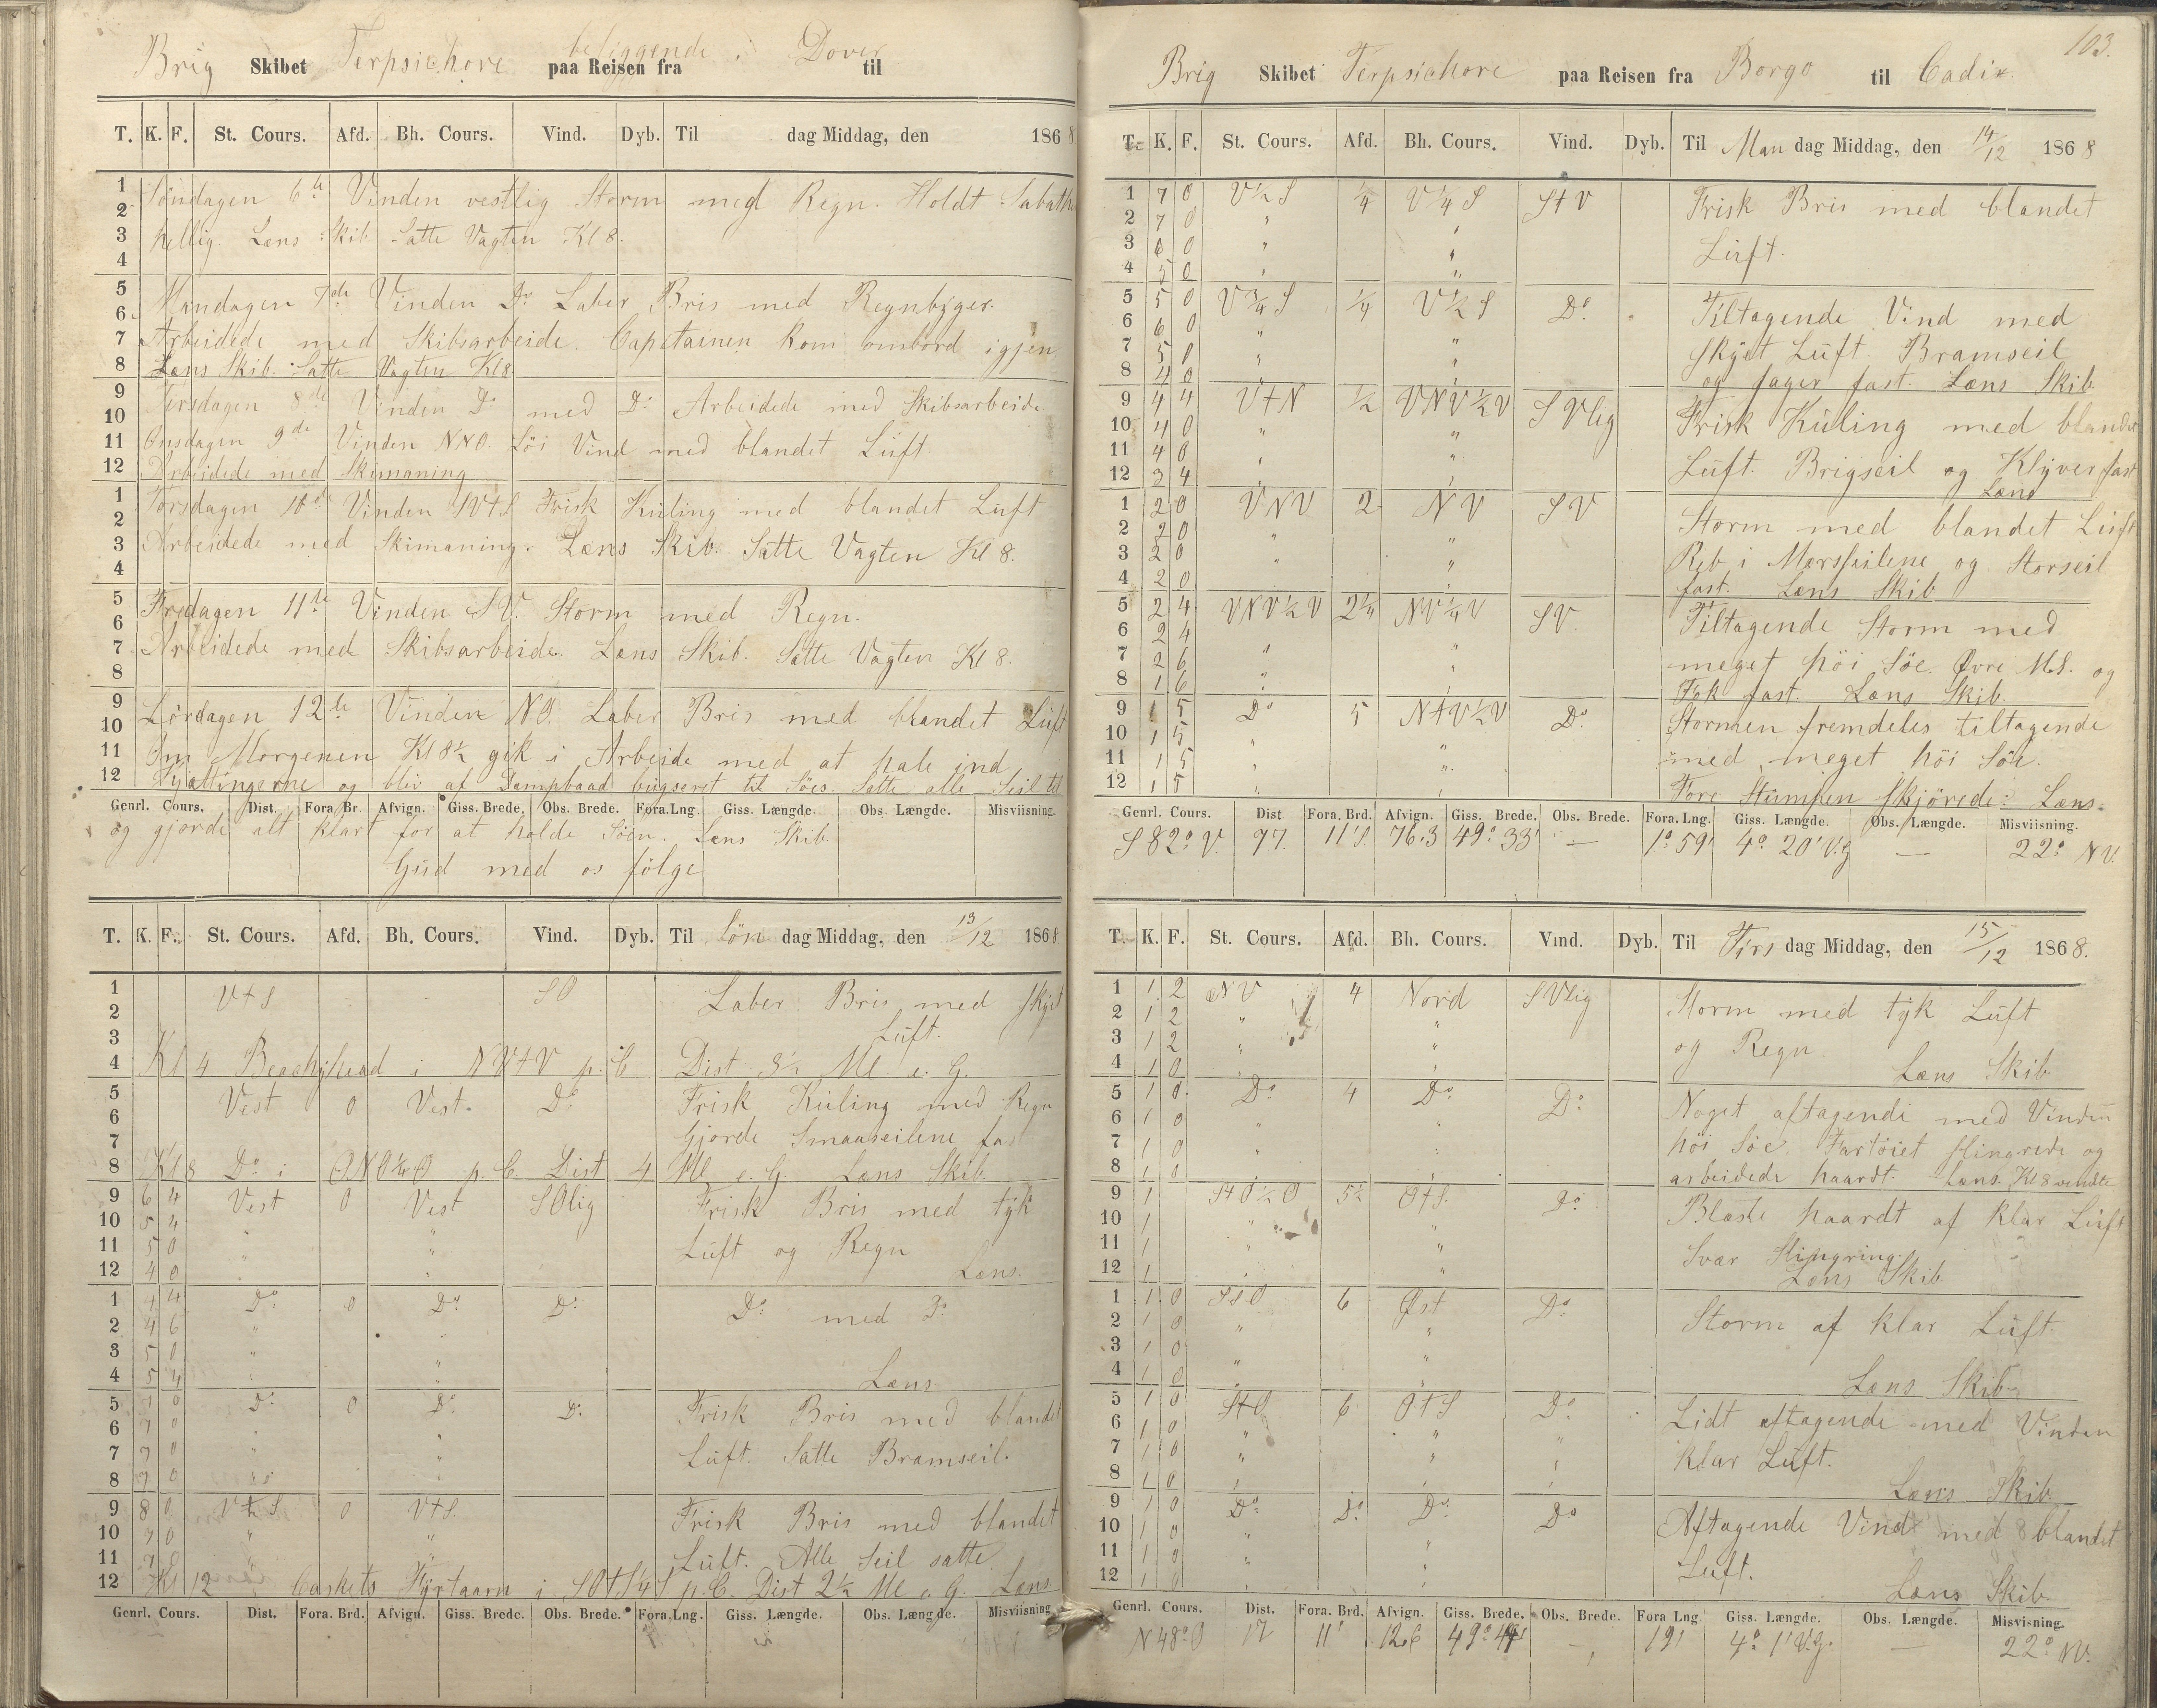 Brig Skibet Terpsichore beliggende i Dover
paa Reisen fra til
T. K. F. St. Cours. Afd. Bh. Cours. Vind. Dyb. Til dag Middag, den 1868
1 Søndagen 6te Vinden vestlig Storm med Regn. Holdt Sabathen
2
3 hellig. Læns Skib. Satte Vagten Kl 8.
4
5 Mandagen 7de Vinden Do Laber Bris med Regnbyger.
6
7 Arbeidede med Skibsarbeide. Capitainen kom ombord igjen.
8 Læns Skib. Satte Vagten Kl 8
9 Tirsdagen 8de Vinden Do med Do Arbeidede med Skibsarbeide
10
11 Onsdagen 9de Vinden NNO. Løi Vind med blandet Lüft
12 Arbeidede med Skimaning
1 Torsdagen 10de Vinden SVtS Frisk Küling med blandet Lüft
2
3 Arbeidede med Skimaning. Læns Skib. Satte Vagten Kl 8.
4
5 Fredagen 11te Vinden SV. Storm med Regn.
6
7 Arbeidede med Skibsarbeide. Læns Skib. Satte Vagten Kl 8.
8
9 Lørdagen 12te Vinden NO. Laber Bris med blandet Lüft
10
11 Om Morgenen Kl 8½ gik i Arbeide med at hale ind
12 Kjættingerne og blev af Dampbaad bügseret til Søes. Satte alle Seil til
Genrl. Cours. Dist. Fora Br. Afvign. Giss. Brede. Obs. Brede. Fora.Lng. Giss. Længde. Obs. Længde. Misviisning.
og gjorde alt klart for at holde Søen. Læns Skib.
Gud med os følge
T. K. F. St. Cours. Afd. Bh. Cours. Vind. Dyb. Til Søn dag Middag, den 13/12 1868
1 VtS SO Laber Bris med skyet
2
3 Lüft.
4 Kl 4 Beachyhead i NVtV p. C. Dist 3½ Ml. e. G.
5 Vest 0 Vest. Do Frisk Küling med Regn
6
7 Gjorde Smaaseilene fast
8 Kl 8 Do i ONO¼O p. C. Dist 4 Ml e. G. Læns Skib
9 6 4 Vest 0 Vest SOlig Frisk Bris med tyk
10 5 4 " "
11 5 0 " " Lüft og Regn
12 4 0 " " Læns.
1 4 4 Do 0 Do Do Do med Do
2 4 6 " "
3 5 0 " "
4 5 4 " " Læns
5 7 0 Do 0 Do Do Frisk Bris med blandet
6 7 0 " "
7 7 0 " " Lüft. Satte Bramseil.
8 7 0 " "
9 8 0 V½S 0 VtS. Frisk Bris med blandet
10 7 0 " "
11 7 0 " Lüft. Alle Seil satte
12 Kl 12 Caskets Fyrtaarn i SOtS¼S p. C. Dist 2½ Ml e. G. Læns
Genrl. Cours. Dist. Fora. Brd. Afvign. Giss. Brede. Obs. Brede. Fora.Lng. Giss. Længde. Obs. Længde. Misviisning
103.
Brig Skibet Terpsichore paa Reisen fra Borgo til Cadix.
T. K. F. St. Cours. Afd. Bh. Cours. Vind. Dyb. Til Man dag Middag, den 14/12 1868
1 7 0 V½S ¼ V¼S StV Frisk Bris med blandet
2 7 0 " "
3 6 0 " " Lüft.
4 5 0 " "
5 5 0 V¾S ¼ V½S Do. Tiltagende Vind med
6 6 0 " "
7 5 0 " " skyet Lüft. Bramseil
8 4 0 " " og Jager fast. Læns Skib.
9 4 4 VtN ½ VNV½V SVlig Frisk Küling med blandet
10 4 0 " "
11 4 0 " " Lüft. Brigseil og Klyver fast
12 3 4 " " Læns
1 2 0 VNV 2 NV SV Storm med blandet Lüft
2 2 0 " "
3 2 0 " " Reb i Mersseilene og Storseil
4 2 0 " fast. Læns Skib
5 2 4 VNV½V 2¼ NV¼V SV. Tiltagende Storm med
6 2 4 " "
7 2 6 " " meget höi Söe. Øvre M.S. og
8 1 6 " " Fok fast. Læns Skib.
9 1 5 Do 5 NtV½V Do. Stormen fremdeles tiltagende
10 1 5 " "
11 1 5 " " med meget höi Söe.
12 1 5 " " Fore Stumpen skjørede. Læns.
Genrl. Cours. Dist. Fora. Brd. Afvign. Giss. Brede. Obs. Brede. Fora. Lng. Giss. Længde. Obs. Længde. Misviisning.
S 82° V. 77. 11'S. 76.3 49° 33' — 1° 59' 4° 20' V.G — 22° NV.
T. K. F. St. Cours. Afd. Bh. Cours. Vind. Dyb. Til Tirs dag Middag, den 15/12 1868.
1 1 2 NV 4 Nord SVlig Storm med tyk Lüft
2 1 2 " "
3 1 2 " " og Regn.
4 1 0 " Læns Skib
5 1 0 Do 4 Do Do. Noget aftagende med Vinden
6 1 0 " "
7 1 0 " " höi Söe. Fartöiet slingrede og
8 1 0 " arbeidede haardt. Læns. Kl 8 vendte
9 1 StO½O 5½ OtS. Do. Blæste haardt af klar Lüft
10 1 " "
11 1 " " Svær Slingring.
12 1 " " Læns Skib
1 1 0 SSO 6 Øst Do Storm af klar Lüft.
2 1 0 " "
3 1 0 " "
4 1 0 " " Læns Skib
5 1 0 StO 6 OtS Do Lidt aftagende med Vinden
6 1 0 " " "
7 1 0 " " " klar Lüft.
8 1 0 " " Læns Skib.
9 1 0 Do Do Do. Do Aftagende Vind med blandet
10 1 0 " "
11 1 0 " " Lüft.
12 1 0 " " Læns Skib.
Genrl. Cours. Dist. Fora. Brd. Afvign. Giss. Brede. Obs. Brede. Fora Lng. Giss. Længde. Obs. Længde. Misvisning.
N 48° O 17 11' 12.6 49° 44' — 19' 4° 1' V.G. — 22° NV.